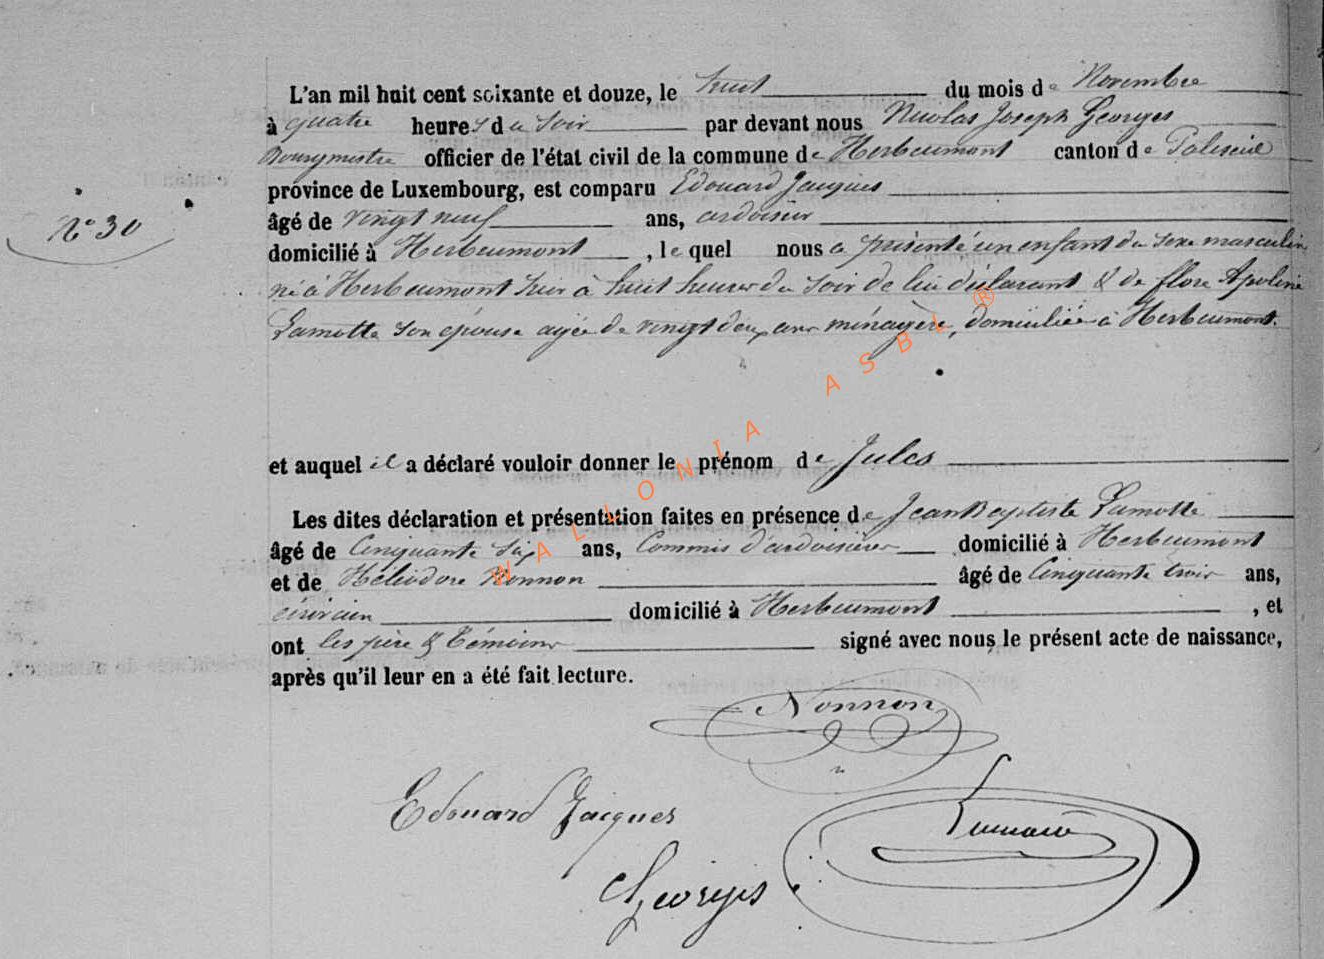 L'an mil huit cent soixante et douze, le huit du mois de Novembre
à quatre heures du soir par devant nous Nicolas Joseph Georges
Bourgmestre officier de l'état civil de la commune de Herbeumont canton de Paliseul
province de Luxembourg, est comparu Edouard Jacques
N° 30
âgé de vingt neuf ans, ardoisier
domicilié à Herbeumont, lequel nous a présenté un enfant du sexe masculin
né à Herbeumont hier à huit heures du soir de lui déclarant & de flore Apoline
Lamotte son épouse agée de vingt deux ans ménagère, domiciliée à Herbeumont.
et auquel il a déclaré vouloir donner le prénom de Jules
Les dites déclaration et présentation faites en présence de Jean Baptiste Lamotte
âgé de Cinquante six ans, Commis d'ardoisières domicilié à Herbeumont
et de Héliodore Nonnon âgé de Cinquante trois ans,
domicilié à Herbeumont, et
ont les père & témoins signé avec nous le présent acte de naissance,
après qu'il leur en a été fait lecture.
Nonnon
Edouard Jacques
Georges
WALLONIA ASBL ®